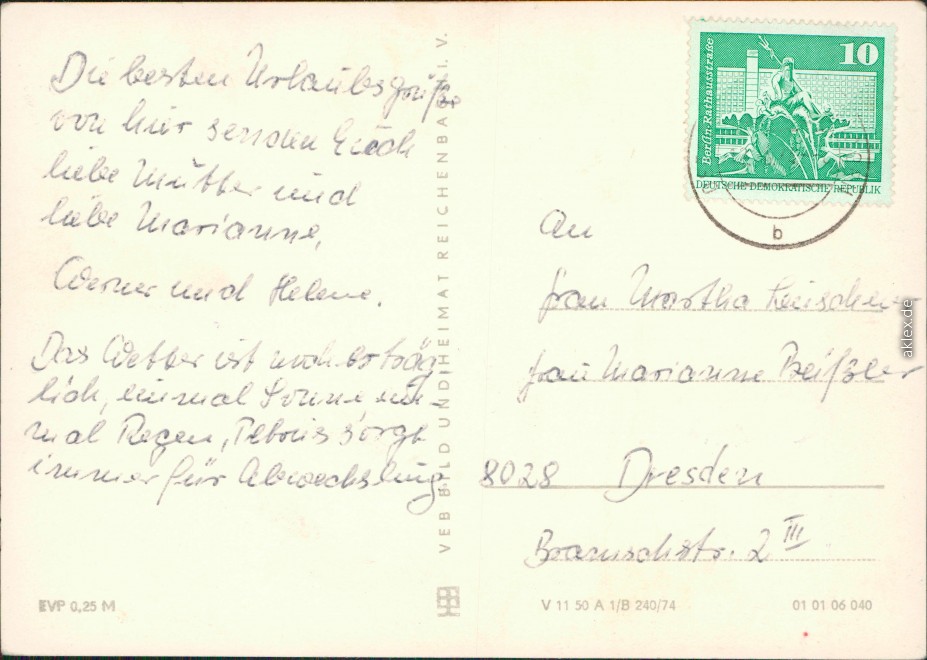 Die besten Urlaubsgrüße
von hier senden Euch
liebe Mutter und
liebe Marianne,
Werner und Helene.
Das Wetter ist noch erträg-
lich, einmal Sonne ein-
mal Regen, Petrus sorgt
immer für Abwechslung
VEB BILD UND HEIMAT REICHENBACH I. V.
EVP 0,25 M
Berlin-Rathausstraße
10
DEUTSCHE DEMOKRATISCHE REPUBLIK
b
An
Frau Martha
Frau Marianne
8028 Dresden
Bramschstr. 2 III
V 11 50 A 1/B 240/74
01 01 06 040
aklex.de